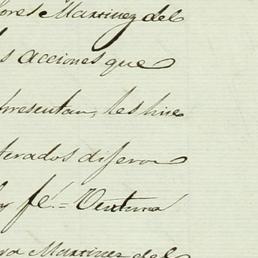 Martinez del
acciones que
presentan, les hice
terados dijeron
fé = Ventura
Martinez del